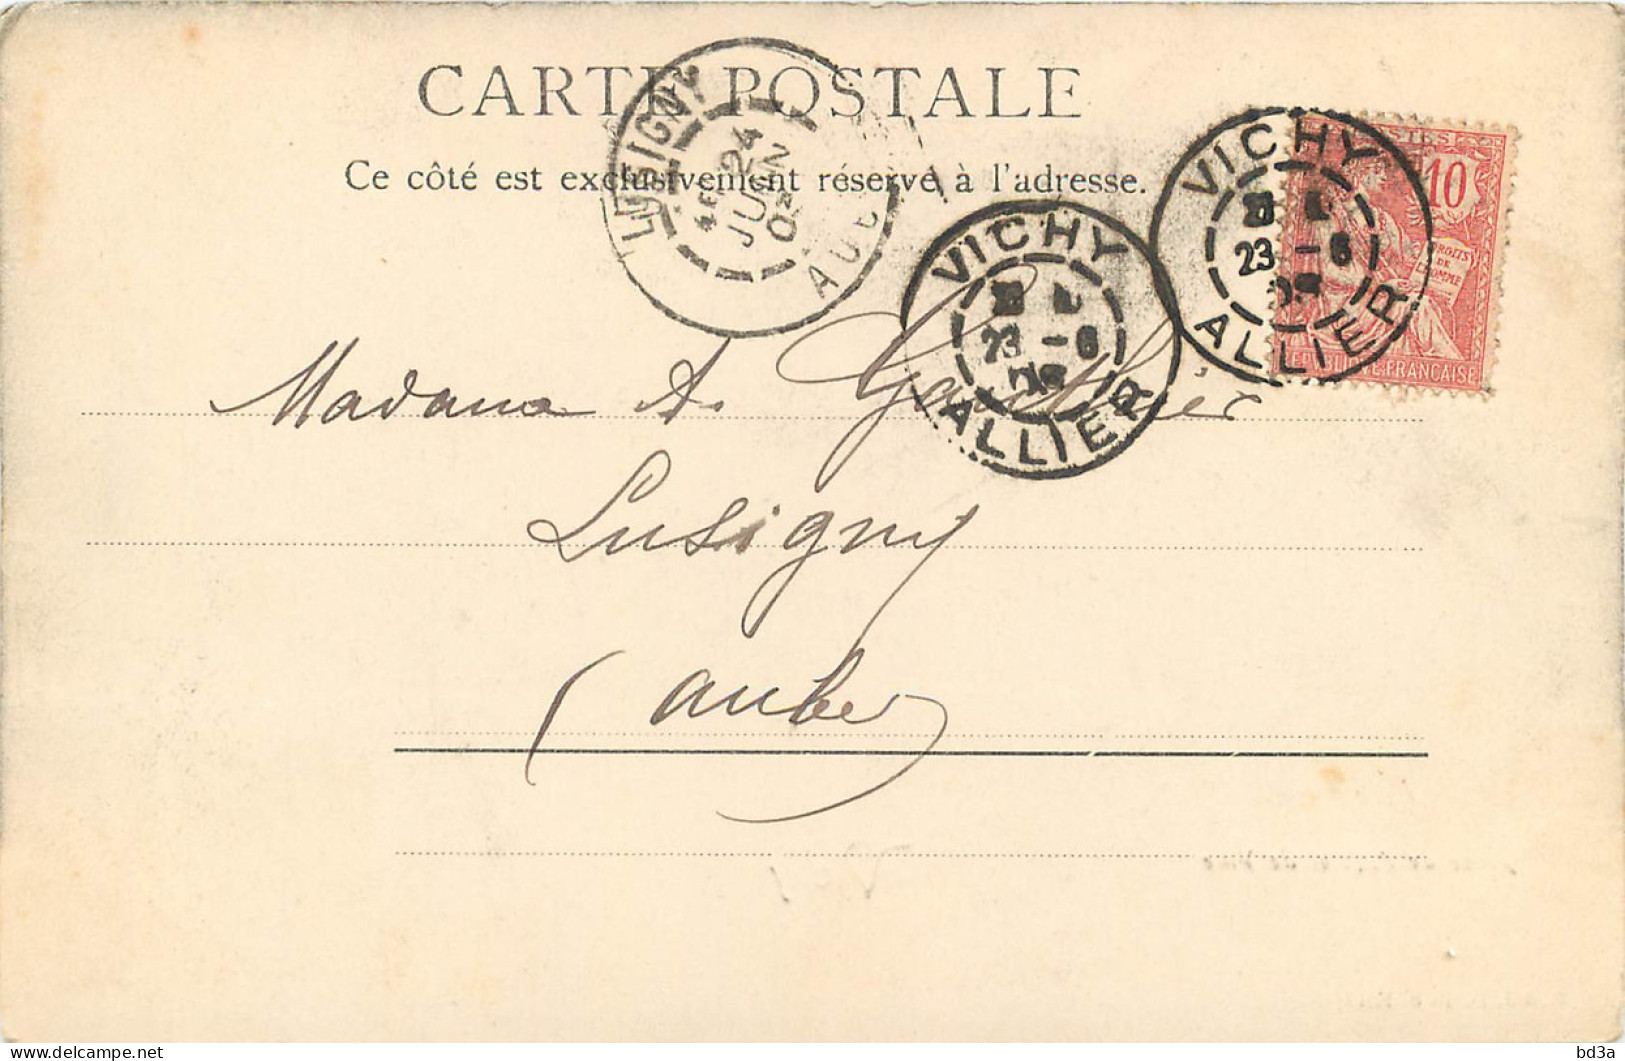 CARTE POSTALE
Ce côté est exclusivement réservé à l'adresse.
LUSIGNY
24
JUIN
AUBE
VICHY
23 - 6
ALLIER
VICHY
23 - 6
ALLIER
POSTES
10
DROITS
DE
L'HOMME
REPUBLIQUE FRANÇAISE
Madame A. Gauthier
Lusigny
(aube)
bd3a